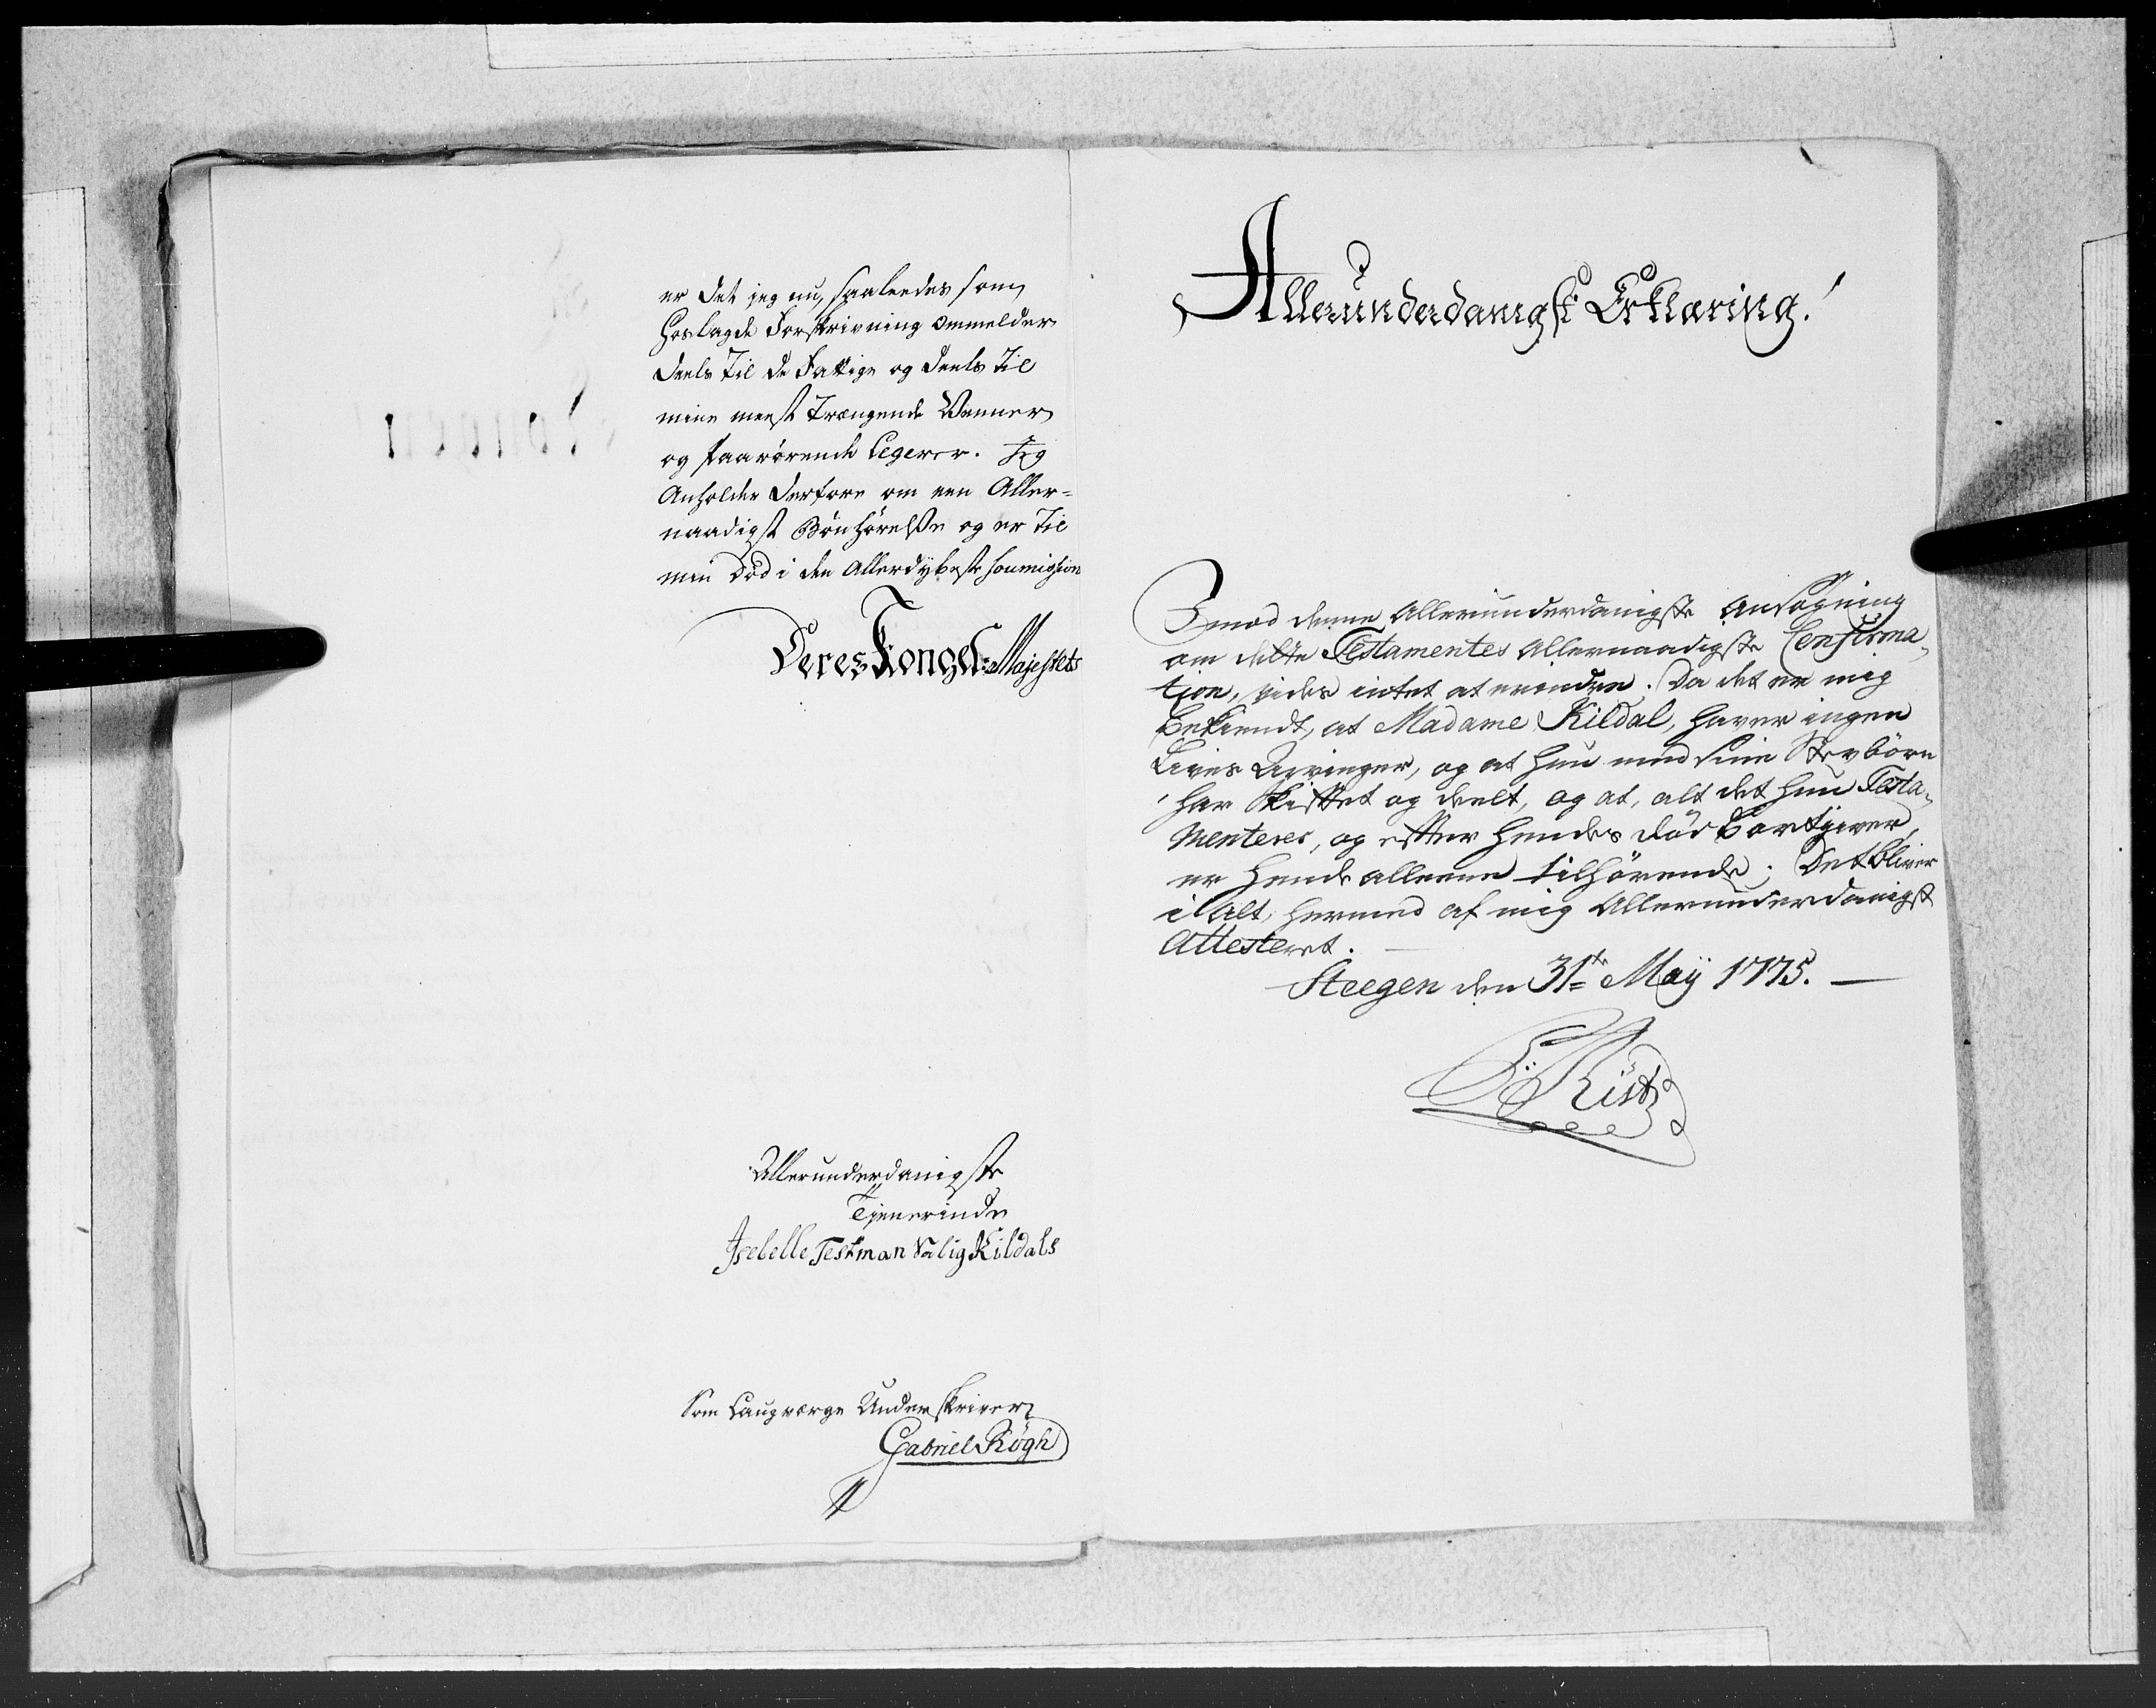 er det jeg nu, saaleedes som
Hoslagde Forskrivning ommelder
deels Til de Fattige og deels Til
mine meest Trængende Venner
og Paarørende Legerer. Jeg
Anholder derfore om een Aller=
naadigst Bönhörelse og er Til
min Död i den Allerdybeste Soumission
Deres Kongel: Majestets
Allerunderdanigste
Tjenerinde
Isebelle Testman Salig Kildals
Som Laugværge Underskriver
Gabriel Rögh
Allerunderdanigst Erklæring!
Imod denne Allerunderdanigste Ansøgning
om dette Testamentes Allernaadigste Confirma„
tjon, vides intet at erindre. Da det er mig
bekiendt, at Madame Kildal, haver ingen
Livs Arvinger, og at hun med sine Stevbörn
har Skiftet og deelt, og at, alt det hun Testa„
menterer, og efter hendes död bortgiver,
er hende alleene tilhörende; Det bliver
i alt, hermed af mig Allerunderdanigst
Attesteret.
Steegen den 31te Maÿ 1775.